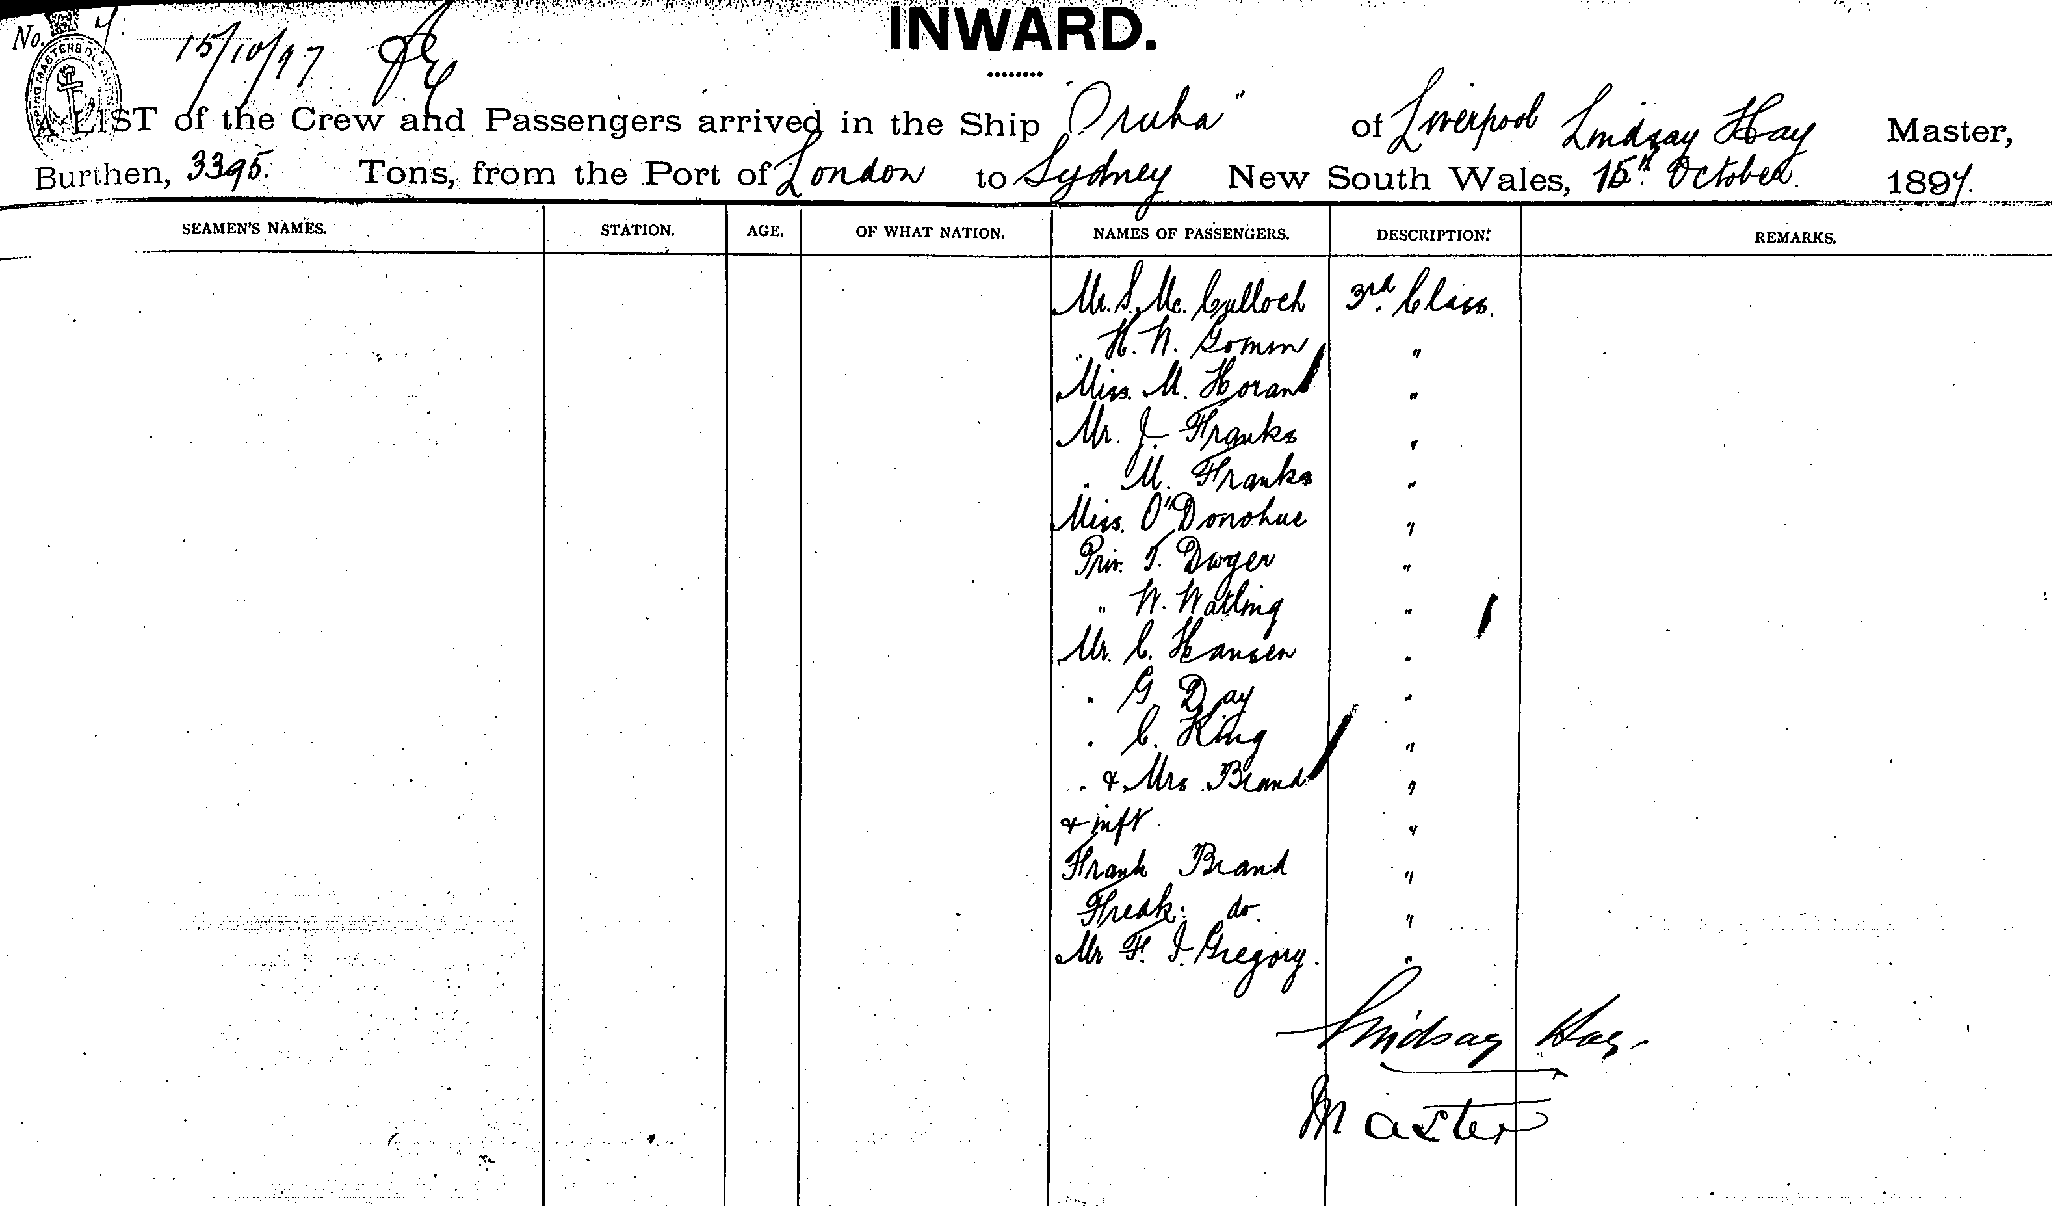 No. 4.
15/10/97
INWARD.
A LIST of the Crew and Passengers arrived in the Ship "Oruba" of Liverpool Lindsay Hay Master,
Burthen, 3395. Tons, from the Port of London to Sydney New South Wales, 15th October. 1897.
SEAMEN'S NAMES. STATION. AGE. OF WHAT NATION. NAMES OF PASSENGERS. DESCRIPTION. REMARKS.
Mr. S. Mc. Culloch 3rd. Class.
" H. W. Goman "
Miss. M. Horan "
Mr. J. Franks "
" M. Franks "
Miss. O'Donohue "
Priv. T. Dwyer "
" W. Watling "
Mr. C. Hansen "
" G. Day "
" C. King "
" & Mrs Brand "
& inft. "
Frank Brand "
Fredk. do. "
Mr F. J. Gregory. "
Lindsay Hay.
Master